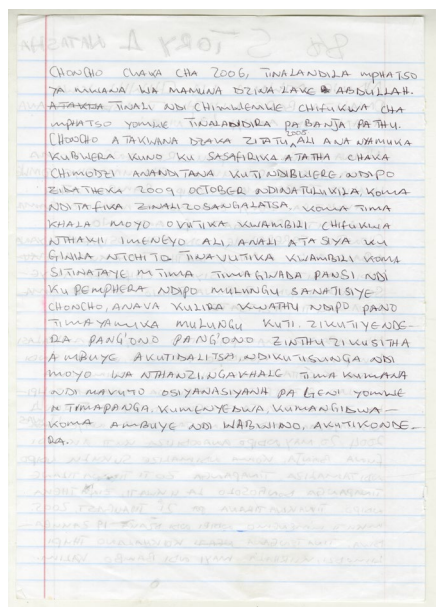 CHONCHO CHAKA CHA 2006, TINALANDILA MPHATSO
YA MWANA WA MAMUNA DZINA LAKE ABDULLAH.
ATAKDA TINALI NDI CHIMWEMWE CHIFUKWA CHA
MPHATSO YOMWE TINALANDIRA PA BANJA PATHU.
CHONCHO ATAKWANA DZAKA ZITATU 2005 ALI ANA NYAMUKA
KUBWERA KUNO KU SASAFIRIKA ATATHA CHAKA
CHIMODZI ANANDITANA KUTI NDIBWERE, NDIPO
ZIDATHEKA 2009 OCTOBER NDINATULUKILA, KOMA
NDITAFIKA ZINALI ZOSANGALATSA. KOMA TIMA
KHALA MOYO OVUTIKA KWAMBILI CHIFUKWA
NTHAWI IMENEYO ALI, ANALI ATASIYA KU
GINILA NTCHITO TINAVUTIKA KWAMBILI KOMA
SITINATAYE MTIMA TIMAGINADA PANSI NDI
KUPEMPHERA NDIPO MULUNGU SANATISIYE
CHONCHO, ANAVA KULIRA KWATHU NDIPO PANO
TIMAYAMIKA MULUNGU KUTI. ZIKUTIYENDE-
RA PANG'ONO PANG'ONO ZINTHU ZIKUSITHA
AMBUYE AKUTIDALITSA, NDIKUTISUNGA NDI
MOYO WA NTHANZI, NGAKHALE TIMA KUMANA
NDI MAVUTO OSIYANASIYANA PA GENI YOMWE
NTIMAPANGA. KUMENYEDWA, KUMANGIDWA -
KOMA AMBUYE NDI WABWINO, AKUTIKONDE-
RA.